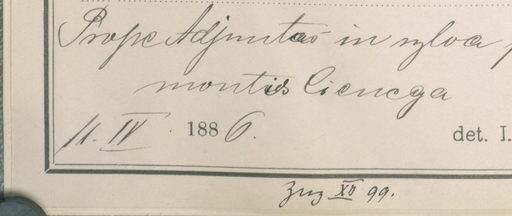 Prope Adjuntas in sylva
montis Cienega
11. IV. 1886.
det. I.
XII 99.